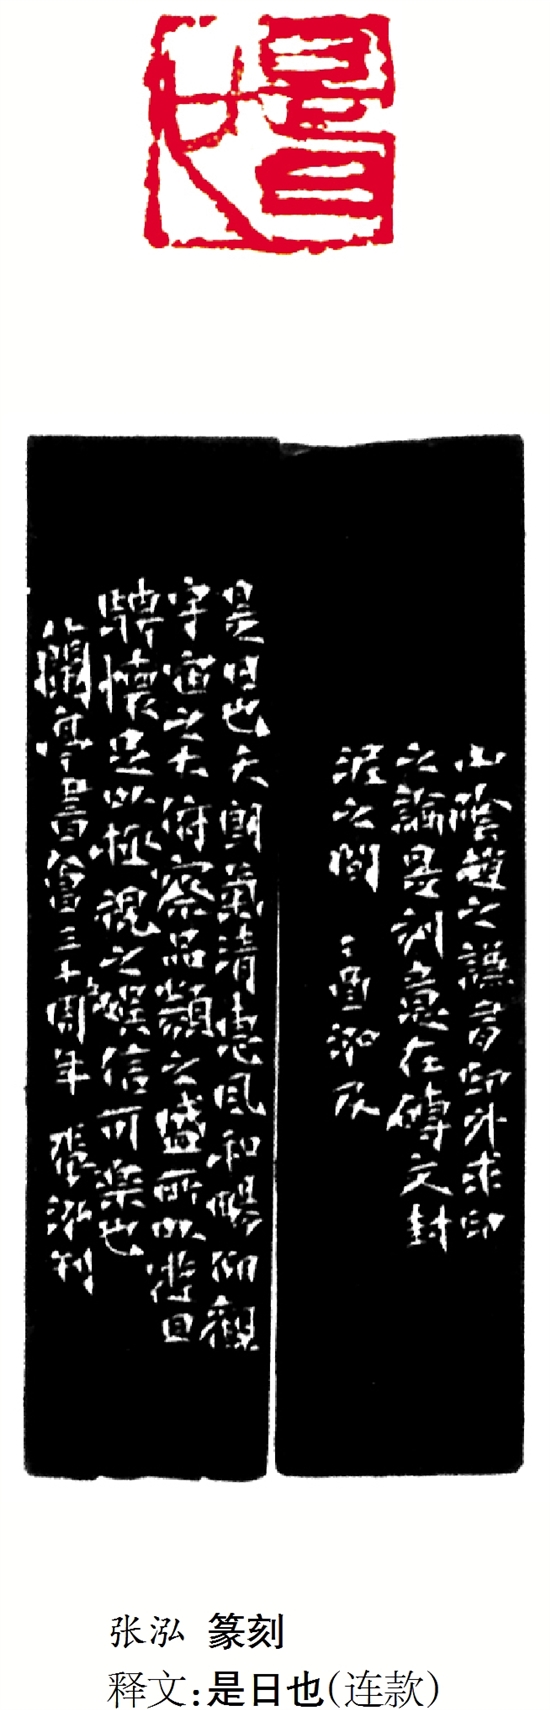 是日也
山陰趙之謙有印外求印
之論是刻意在磚文封
泥之間 泓
是日也天朗氣清惠風和暢仰觀
宇宙之大俯察品類之盛所以遊目
騁懷足以極視之娛信可樂也
蘭亭書會三十周年 張泓刊
张泓 篆刻
释文:是日也(连款)